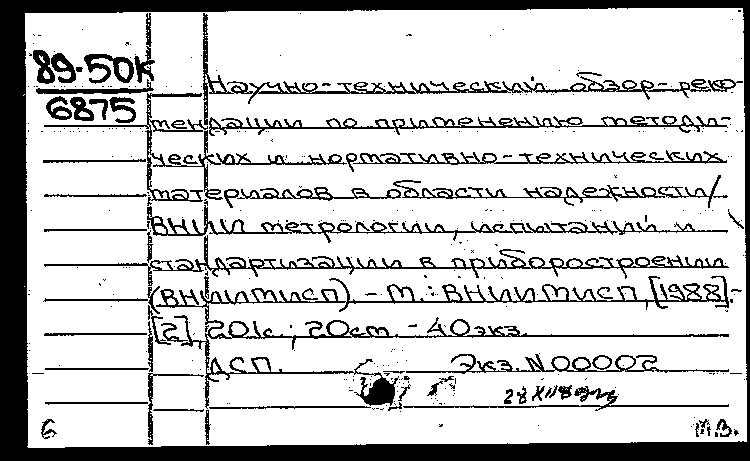 89-50К
6875
Научно-технический обзор-реко-
мендации по применению методи-
ческих и нормативно-технических
материалов в области надежности/
ВНИИ метрологии, испытаний и
стандартизации в приборостроении
(ВНИИМИСП). - М.: ВНИИМИСП, [1988]. -
[2], 201с.; 20см. - 40экз.
ДСП. Экз. N00002
28
6 М.В.